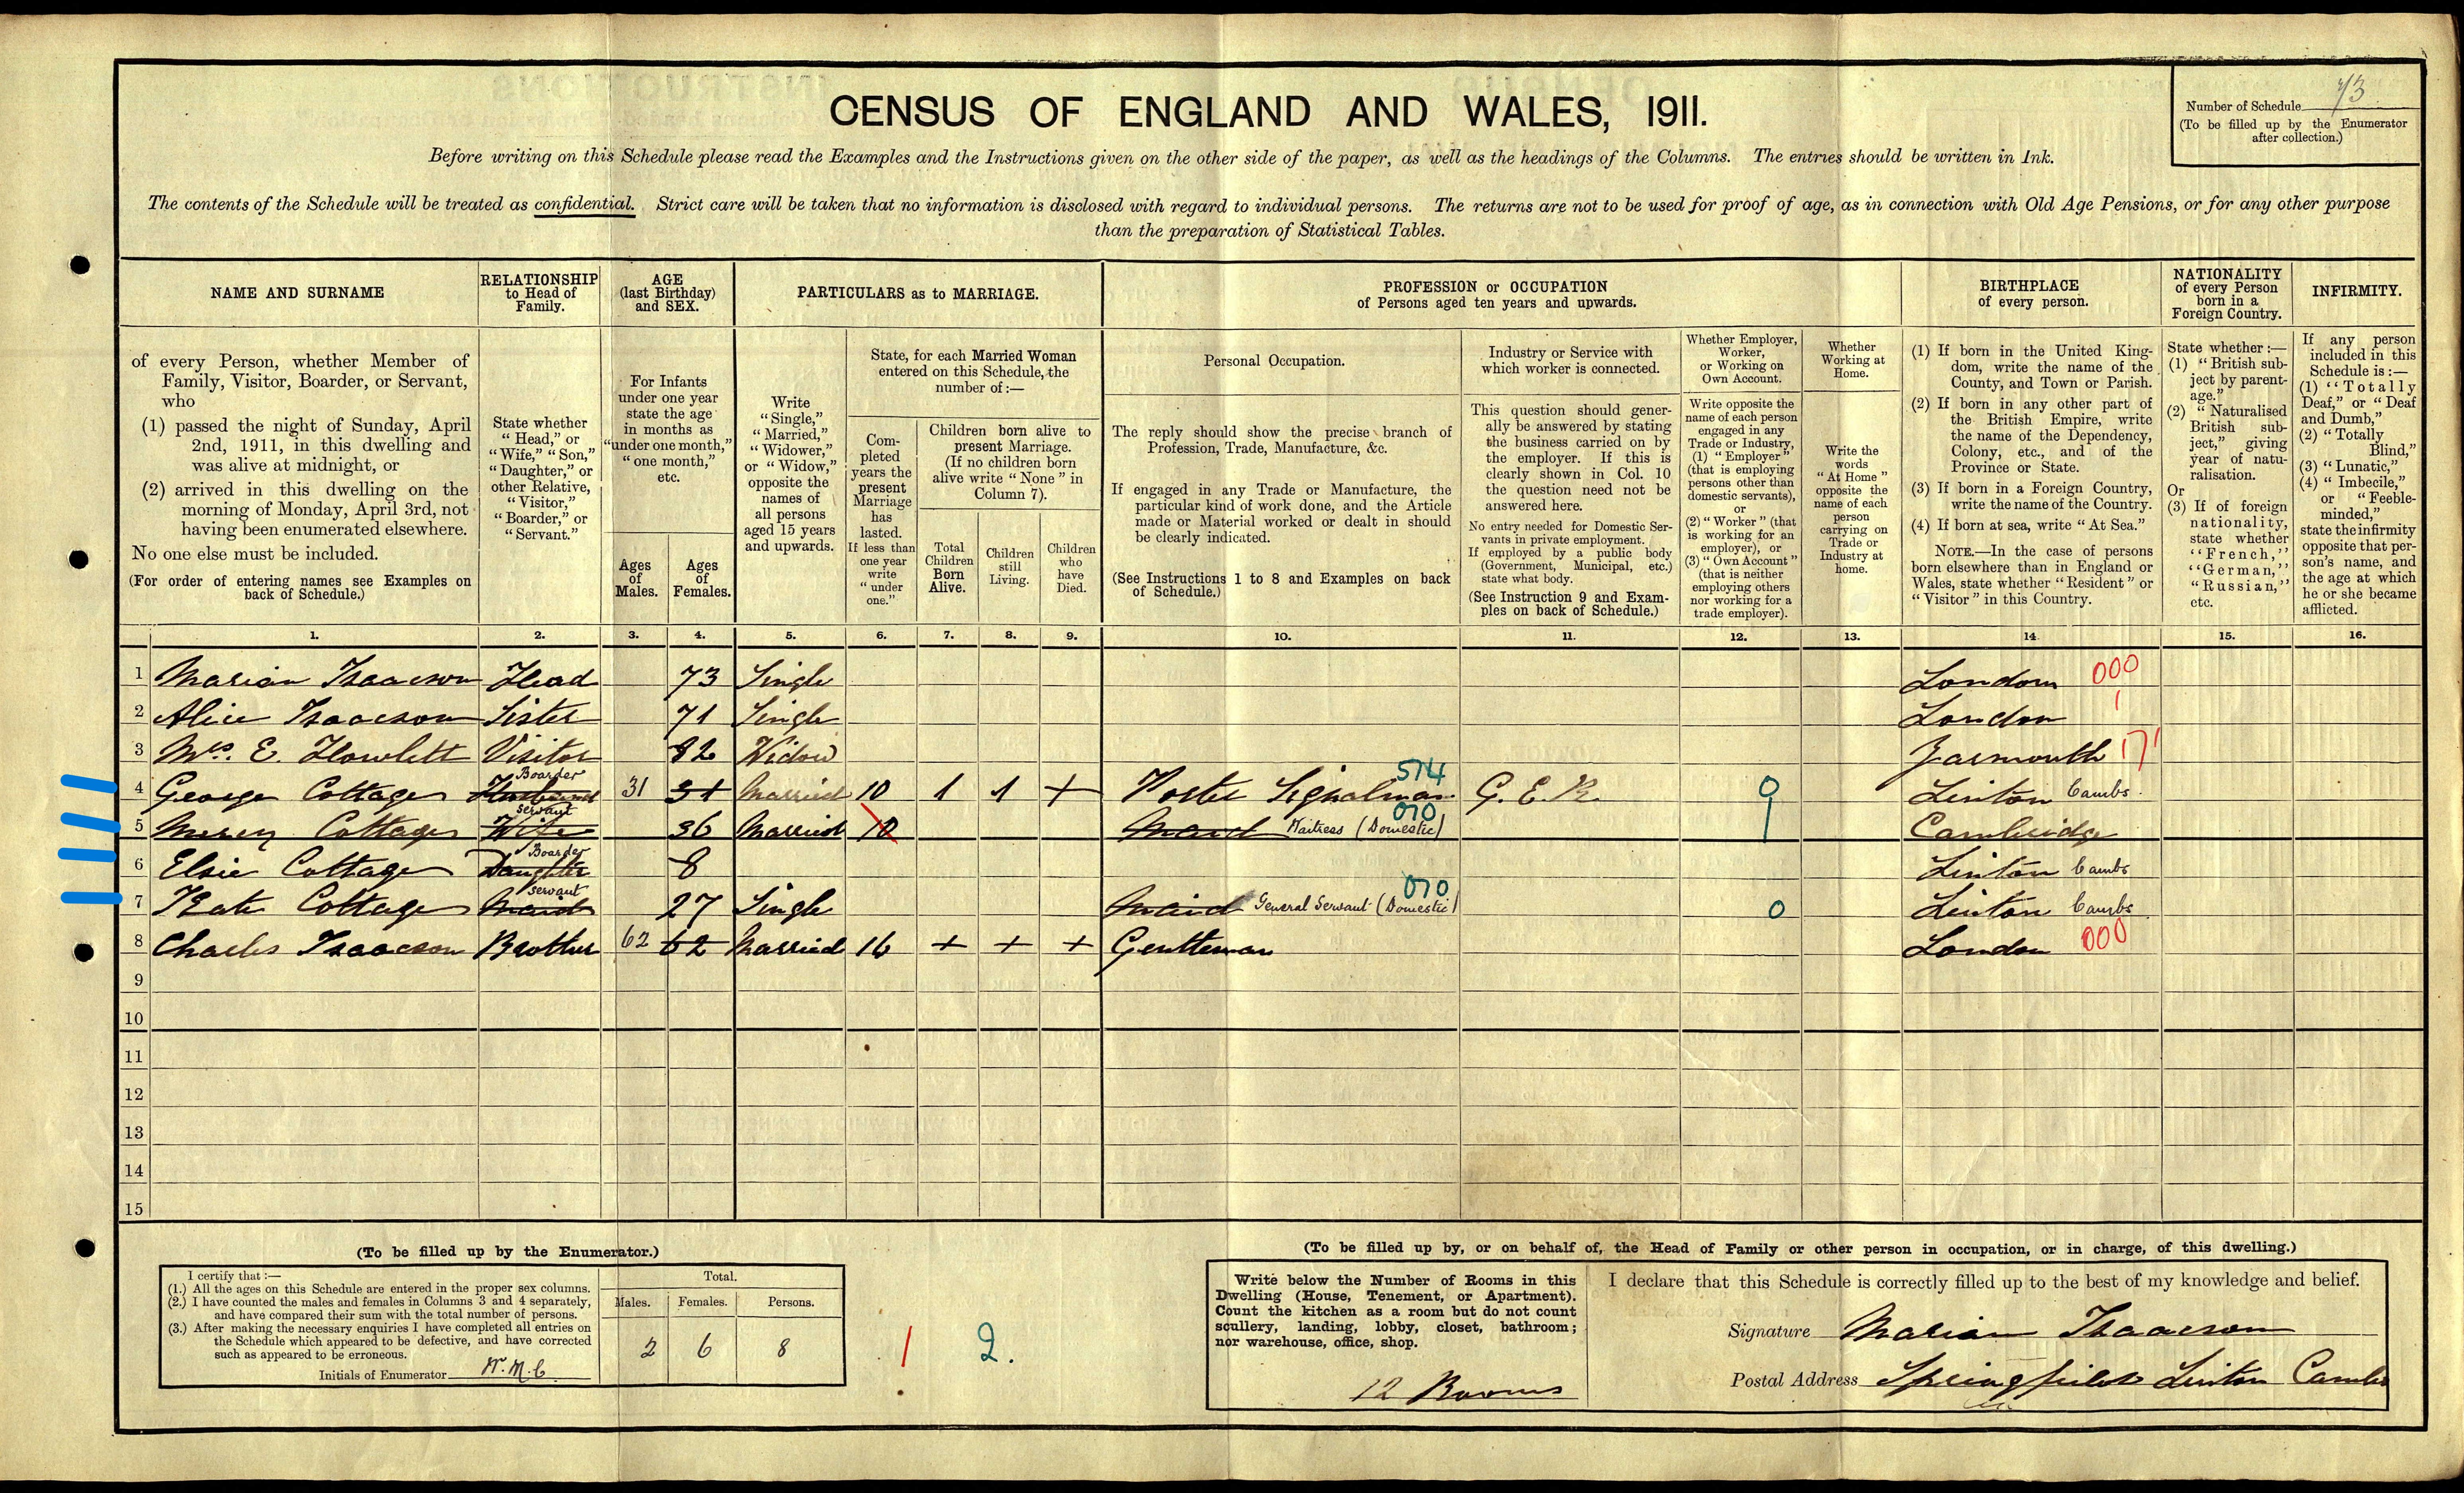 CENSUS OF ENGLAND AND WALES, 1911.
Number of Schedule 73
(To be filled up by the Enumerator
after collection.)
Before writing on this Schedule please read the Examples and the Instructions given on the other side of the paper, as well as the headings of the Columns. The entries should be written in Ink.
The contents of the Schedule will be treated as confidential. Strict care will be taken that no information is disclosed with regard to individual persons. The returns are not to be used for proof of age, as in connection with Old Age Pensions, or for any other purpose
than the preparation of Statistical Tables.
NAME AND SURNAME
of every Person, whether Member of
Family, Visitor, Boarder, or Servant,
who
(1) passed the night of Sunday, April
2nd, 1911, in this dwelling and
was alive at midnight, or
(2) arrived in this dwelling on the
morning of Monday, April 3rd, not
having been enumerated elsewhere.
No one else must be included.
(For order of entering names see Examples on
back of Schedule.)
RELATIONSHIP
to Head of
Family.
State whether
"Head," or
"Wife," "Son,"
"Daughter," or
other Relative,
"Visitor,"
"Boarder," or
"Servant."
AGE
(last Birthday)
and SEX.
For Infants
under one year
state the age
in months as
"under one month,"
"one month,"
etc.
Ages
of
Males.
Ages
of
Females.
PARTICULARS as to MARRIAGE.
Write
"Single,"
"Married,"
"Widower,"
or "Widow,"
opposite the
names of
all persons
aged 15 years
and upwards.
State, for each Married Woman
entered on this Schedule, the
number of :—
Com-
pleted
years the
present
Marriage
has
lasted.
If less than
one year
write
"under
one."
Children born alive to
present Marriage.
(If no children born
alive write "None" in
Column 7).
Total
Children
Born
Alive.
Children
still
Living.
Children
who
have
Died.
PROFESSION or OCCUPATION
of Persons aged ten years and upwards.
Personal Occupation.
The reply should show the precise branch of
Profession, Trade, Manufacture, &c.
If engaged in any Trade or Manufacture, the
particular kind of work done, and the Article
made or Material worked or dealt in should
be clearly indicated.
(See Instructions 1 to 8 and Examples on back
of Schedule.)
Industry or Service with
which worker is connected.
This question should gener-
ally be answered by stating
the business carried on by
the employer. If this is
clearly shown in Col. 10
the question need not be
answered here.
No entry needed for Domestic Ser-
vants in private employment.
If employed by a public body
(Government, Municipal, etc.)
state what body.
(See Instruction 9 and Exam-
ples on back of Schedule.)
Whether Employer,
Worker,
or Working on
Own Account.
Write opposite the
name of each person
engaged in any
Trade or Industry,
(1) "Employer"
(that is employing
persons other than
domestic servants),
or
(2) "Worker" (that
is working for an
employer), or
(3) "Own Account"
(that is neither
employing others
nor working for a
trade employer).
Whether
Working at
Home.
Write the
words
"At Home"
opposite the
name of each
person
carrying on
Trade or
Industry at
home.
BIRTHPLACE
of every person.
(1) If born in the United King-
dom, write the name of the
County, and Town or Parish.
(2) If born in any other part of
the British Empire, write
the name of the Dependency,
Colony, etc., and of the
Province or State.
(3) If born in a Foreign Country,
write the name of the Country.
(4) If born at sea, write "At Sea."
NOTE.—In the case of persons
born elsewhere than in England or
Wales, state whether "Resident" or
"Visitor" in this Country.
NATIONALITY
of every Person
born in a
Foreign Country.
State whether :—
(1) "British sub-
ject by parent-
age."
(2) "Naturalised
British sub-
ject," giving
year of natu-
ralisation.
Or
(3) If of foreign
nationality,
state whether
"French,"
"German,"
"Russian,"
etc.
INFIRMITY.
If any person
included in this
Schedule is :—
(1) "Totally
Deaf," or "Deaf
and Dumb,"
(2) "Totally
Blind,"
(3) "Lunatic,"
(4) "Imbecile,"
or "Feeble-
minded,"
state the infirmity
opposite that per-
son's name, and
the age at which
he or she became
afflicted.
1. 2. 3. 4. 5. 6. 7. 8. 9. 10. 11. 12. 13. 14. 15. 16.
1 Marian Isaacson Head 73 Single London 000
2 Alice Isaacson Sister 71 Single London 1
3 Mrs. E. Howlett Visitor 82 Widow Yarmouth 171
Boarder 514
4 George Cottage Husband 31 31 Married 10 1 1 + Porter Signalman G. E. R. 0 Linton Cambs.
Servant 070
5 Mercy Cottage Wife 36 Married 10 Maid Waitress (Domestic) Cambridge
Boarder
6 Elsie Cottage Daughter 8 Linton Cambs
Servant 070
7 Kate Cottage Maid 27 Single Maid General Servant (Domestic) 0 Linton Cambs
8 Charles Isaacson Brother 62 62 Married 16 + + + Gentleman London 000
9
10
11
12
13
14
15
(To be filled up by the Enumerator.)
I certify that :—
(1.) All the ages on this Schedule are entered in the proper sex columns.
(2.) I have counted the males and females in Columns 3 and 4 separately,
and have compared their sum with the total number of persons.
(3.) After making the necessary enquiries I have completed all entries on
the Schedule which appeared to be defective, and have corrected
such as appeared to be erroneous.
Initials of Enumerator W. M. C.
Total.
Males. Females. Persons.
2 6 8
1 2.
(To be filled up by, or on behalf of, the Head of Family or other person in occupation, or in charge, of this dwelling.)
Write below the Number of Rooms in this
Dwelling (House, Tenement, or Apartment).
Count the kitchen as a room but do not count
scullery, landing, lobby, closet, bathroom;
nor warehouse, office, shop.
12 Rooms
I declare that this Schedule is correctly filled up to the best of my knowledge and belief.
Signature Marian Isaacson
Postal Address Springfield Linton Cambs